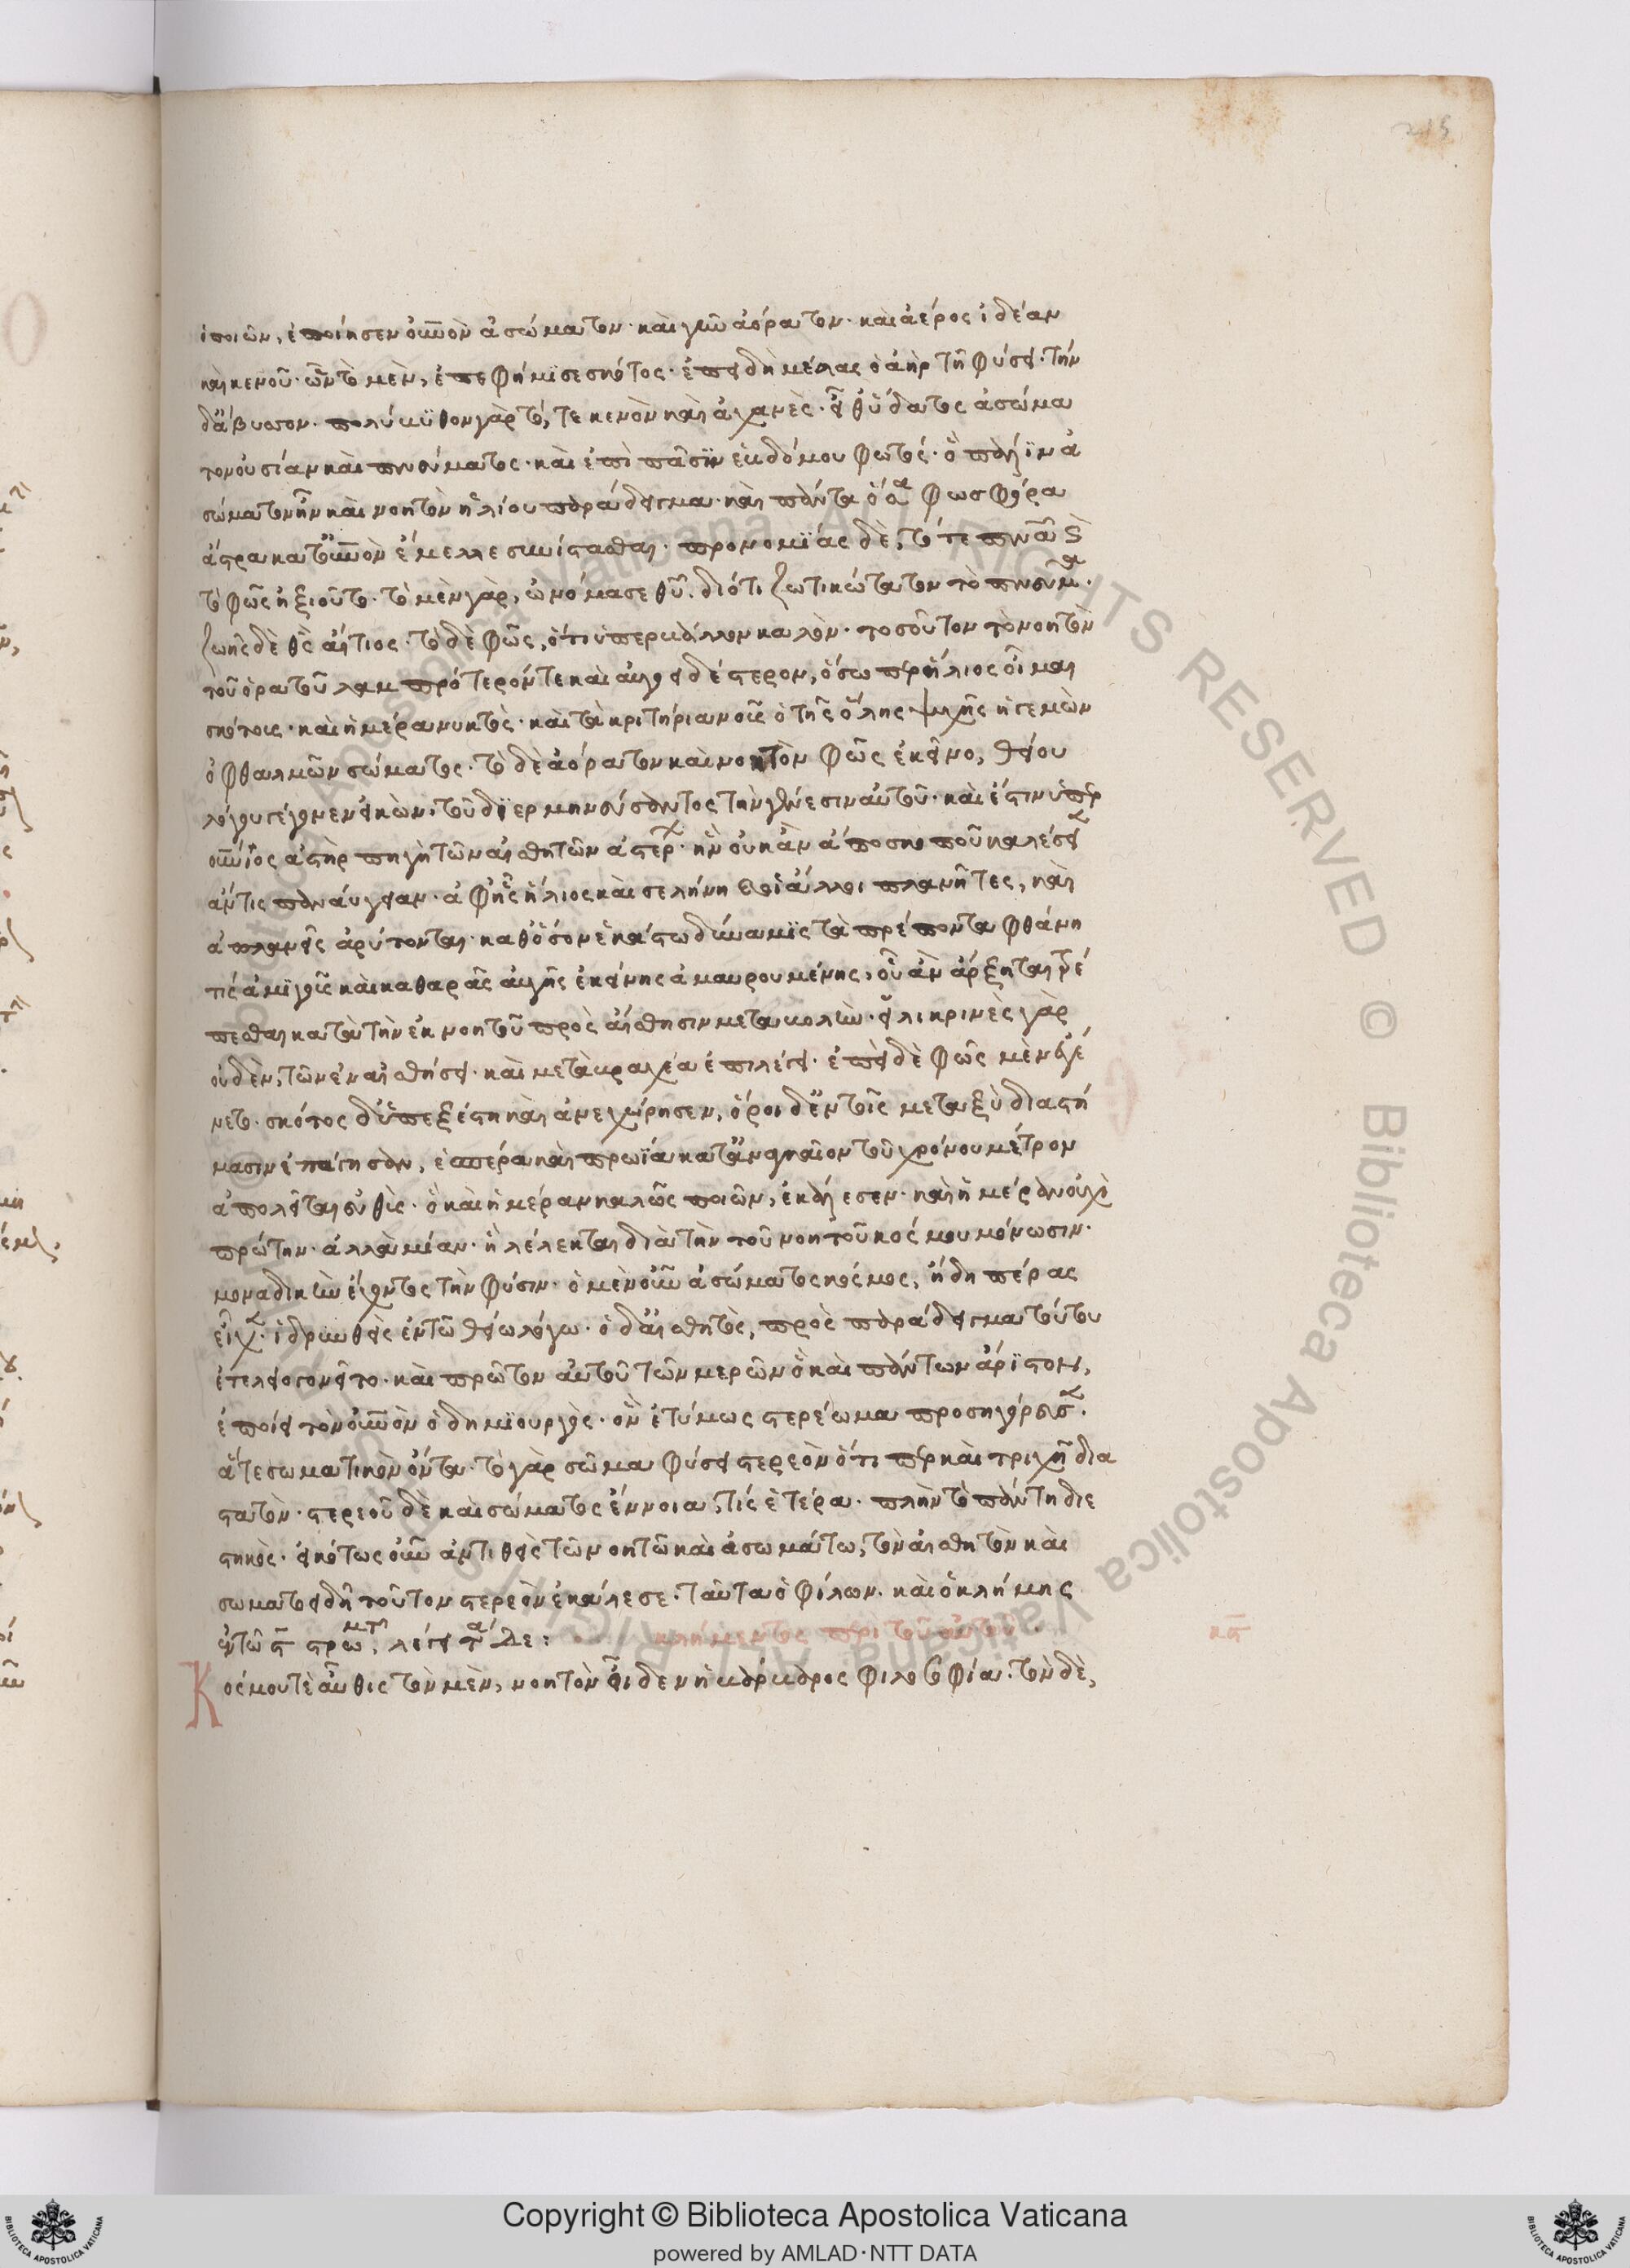 215
ἐποίων, ἐποίησεν οὐνὸν ἀσώματον· καὶ γῆν ἀόρατον· καὶ ἀέρος ἰδέαν
καὶ κενοῦ· ὧν τὸ μὲν, ἐπεφήμισε σκότος· ἐπειδὴ μέλας ὁ ἀὴρ τῇ φύσει· τὴν
δ' ἄβυσσον· πολύβυθον γὰρ τό, τε κενὸν καὶ ἀχανές· εἶθ' ὕδατος ἀσώμα
τον οὐσίαν καὶ πνεύματος· καὶ ἐπὶ πᾶσιν ἑβδόμου φωτός· ὃ πάλιν ἀ
σώματον ἦν καὶ νοητὸν ἡλίου παράδειγμα· καὶ πάντα ὅσα φωσφόρα
ἄστρα κατ' οὐνὸν ἔμελλε συνίστασθαι· προνομίας δὲ, τό τε πνα καὶ
τὸ φῶς ἠξιοῦτο· τὸ μὲν γὰρ, ὠνόμασε θυ· διότι ζωτικώτατον τὸ πνεῦμα·
ζωῆς δὲ θς αἴτιος· τὸ δὲ φῶς, ὅτι ὑπερβάλλον καλόν· τοσοῦτον τὸ νοητὸν
τοῦ ὁρατοῦ λαμπρότερόν τε καὶ αὐγοειδέστερον, ὅσῳ περ ἥλιος οἶμαι
σκότους· καὶ ἡμέρα νυκτός· καὶ τὰ κριτήρια νοῦς ὁ τῆς ὅλης ψυχῆς ἡγεμὼν
ὀφθαλμῶν σώματος· τὸ δὲ ἀόρατον καὶ νοητὸν φῶς ἐκεῖνο, θείου
λόγου γέγονεν εἰκὼν· τοῦ διερμηνεύσαντος τὴν γένεσιν αὐτοῦ· καὶ ἔστιν ὑπερ
οὐνιος ἀστὴρ πηγὴ τῶν αἰσθητῶν ἀστέρων· ἣν οὐκ ἂν ἀπὸ σκοποῦ καλέσειεν
ἄν τις παναύγειαν· ἀφ' ἧς ἥλιος καὶ σελήνη καὶ οἱ ἄλλοι πλανῆτες, καὶ
ἀπλανεῖς ἀρύτονται· καθόσον ἑκάστῳ δύναμις τὰ πρέποντα φθάνη
τῆς ἀμιγοῦς καὶ καθαρᾶς αὐγῆς ἐκείνης ἀμαυρουμένης, ὅταν ἄρξηται τρέ
πεσθαι κατὰ τὴν ἐκ νοητοῦ πρὸς αἴσθησιν μεταβολήν· εἰλικρινὲς γὰρ
οὐδὲν, τῶν ἐν αἰσθήσει· καὶ μετὰ βραχέα ἐπιλέγει· ἐπεὶ δὲ φῶς μὲν ἐγέ
νετο· σκότος δ' ὑπεξέστη καὶ ἀνεχώρησεν, ὅροι δ' ἐν τοῖς μεταξὺ διαστή
μασιν ἐπάγησαν, ἑσπέρα καὶ πρωΐα κατ' ἀναγκαῖον τοῦ χρόνου μέτρον
ἀπολεῖται εὐθὺς· ὃ καὶ ἡμέραν καλῶς ποιῶν, ἐκάλεσεν· καὶ ἡμέραν οὐχὶ
πρώτην· ἀλλὰ μίαν· ἣ λέλεκται διὰ τὴν τοῦ νοητοῦ κόσμου μόνωσιν·
μοναδικὴν ἔχοντος τὴν φύσιν· ὁ μὲν οὖν ἀσώματος κόσμος, ἤδη πέρας
εἶχεν· ἱδρυνθεὶς ἐν τῷ θείῳ λόγῳ· ὁ δ' αἰσθητὸς, πρὸς παράδειγμα τούτου
ἐτελειογονεῖτο· καὶ πρῶτον αὐτοῦ τῶν μερῶν ὃ καὶ πάντων ἄριστον,
ἐποίει τὸν οὐνὸν ὁ δημιουργὸς· ὃν ἐτύμως στερέωμα προσηγόρευσεν·
ἅτε σωματικὸν ὄντα· τὸ γὰρ σῶμα φύσει στερεὸν ὅτι περ καὶ τριχῇ δια
στατὸν· στερεοῦ δὲ καὶ σώματος ἔννοια, τίς ἑτέρα· πλὴν τὸ πάντη διε
στηκὸς· εἰκότως οὖν ἀντιθεὶς τῷ νοητῷ καὶ ἀσωμάτῳ, τὸν αἰσθητὸν καὶ
σωματοειδῆ τοῦτον στερεὸν ἐκάλεσε· ταῦτα ὁ φίλων· καὶ ὁ κλήμης
ἐν τῷ ϛ στρωμτ, λέγει ταδε:
κλήμεντος περὶ τοῦ αὐτοῦ·
κϛ
Κόσμον τε αὖθις τὸν μὲν, νοητὸν οἶδεν ἡ βάρβαρος φιλοσοφία· τὸν δὲ,
Copyright © Biblioteca Apostolica Vaticana
powered by AMLAD·NTT DATA